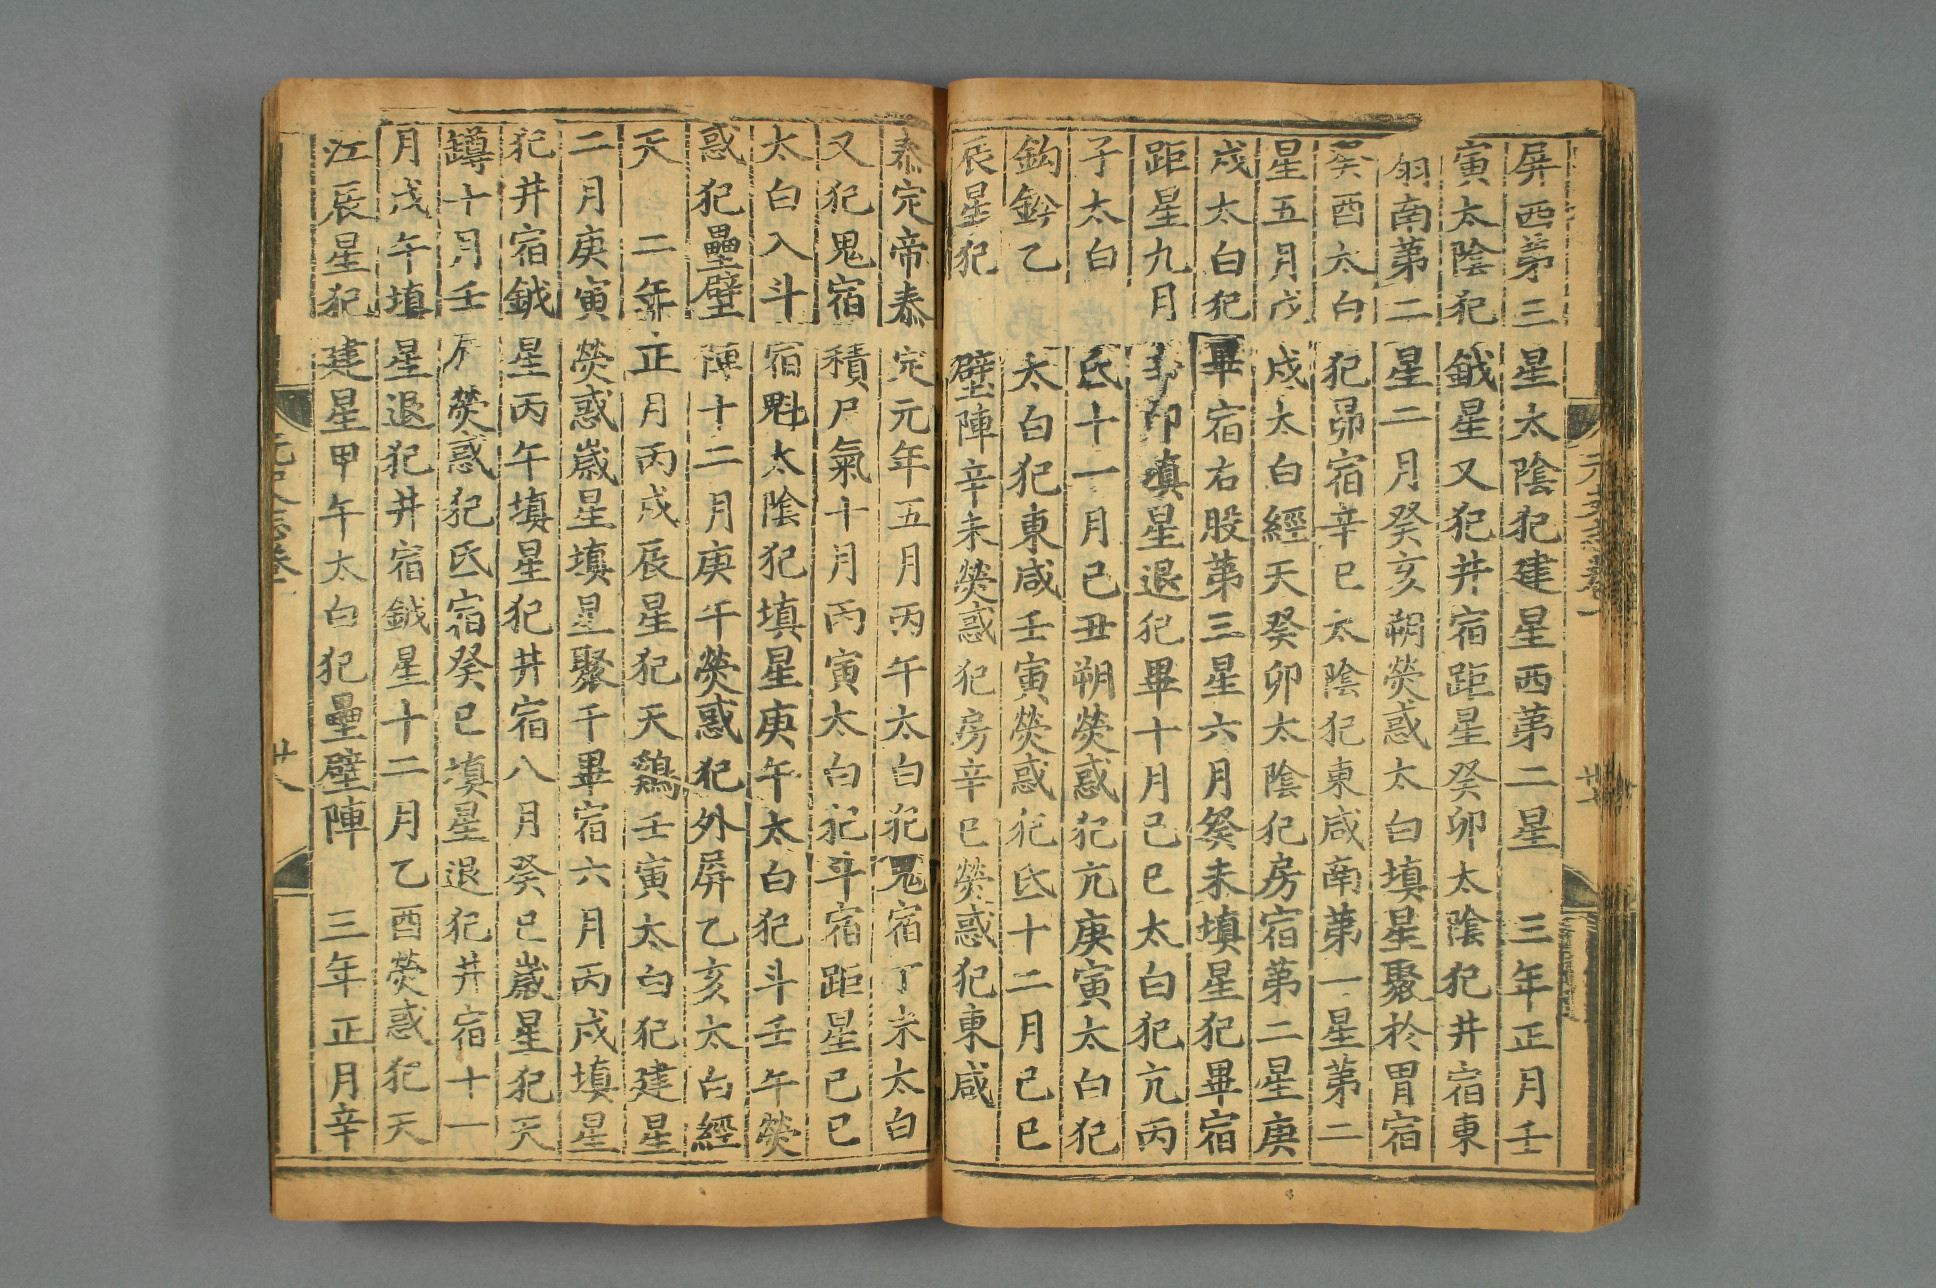 屏西第三星太陰犯建星西第二星　三年正月壬
寅太陰犯鉞星又犯井宿距星癸卯太陰犯井宿東
扇南第二星二月癸亥朔熒惑太白填星聚於胃宿
癸酉太白犯昴宿辛巳太陰犯東咸南第一星第二
星五月戊戌太白經天癸卯太陰犯房宿第二星庚
戌太白犯畢宿右股第三星六月癸未填星犯畢宿
距星九月 卯填星退犯畢十月己巳太白犯亢丙
子太白 氐十一月己丑朔熒惑犯亢庚寅太白犯
鈎鈐乙 太白犯東咸壬寅熒惑犯氐十二月己巳
辰星犯 壁陣辛未熒惑犯房辛巳熒惑犯東咸
泰定帝泰定元年五月丙午太白犯鬼宿丁未太白
又犯鬼宿積尸氣十月丙寅太白犯斗宿距星己巳
太白入斗宿魁太陰犯填星庚午太白犯斗壬午熒
惑犯壘壁陣十二月庚午熒惑犯外屏乙亥太白經
天　二年正月丙戌辰星犯天鷄壬寅太白犯建星
二月庚寅熒惑歲星填星聚于畢宿六月丙戌填星
犯井宿鉞星丙午填星犯井宿八月癸巳歲星犯天
罇十月壬辰熒惑犯氐宿癸巳填星退犯井宿十一
月戊午填星退犯井宿鉞星十二月乙酉熒惑犯天
江辰星犯建星甲午太白犯壘壁陣　三年正月辛
元史志卷一
廿八
廿七